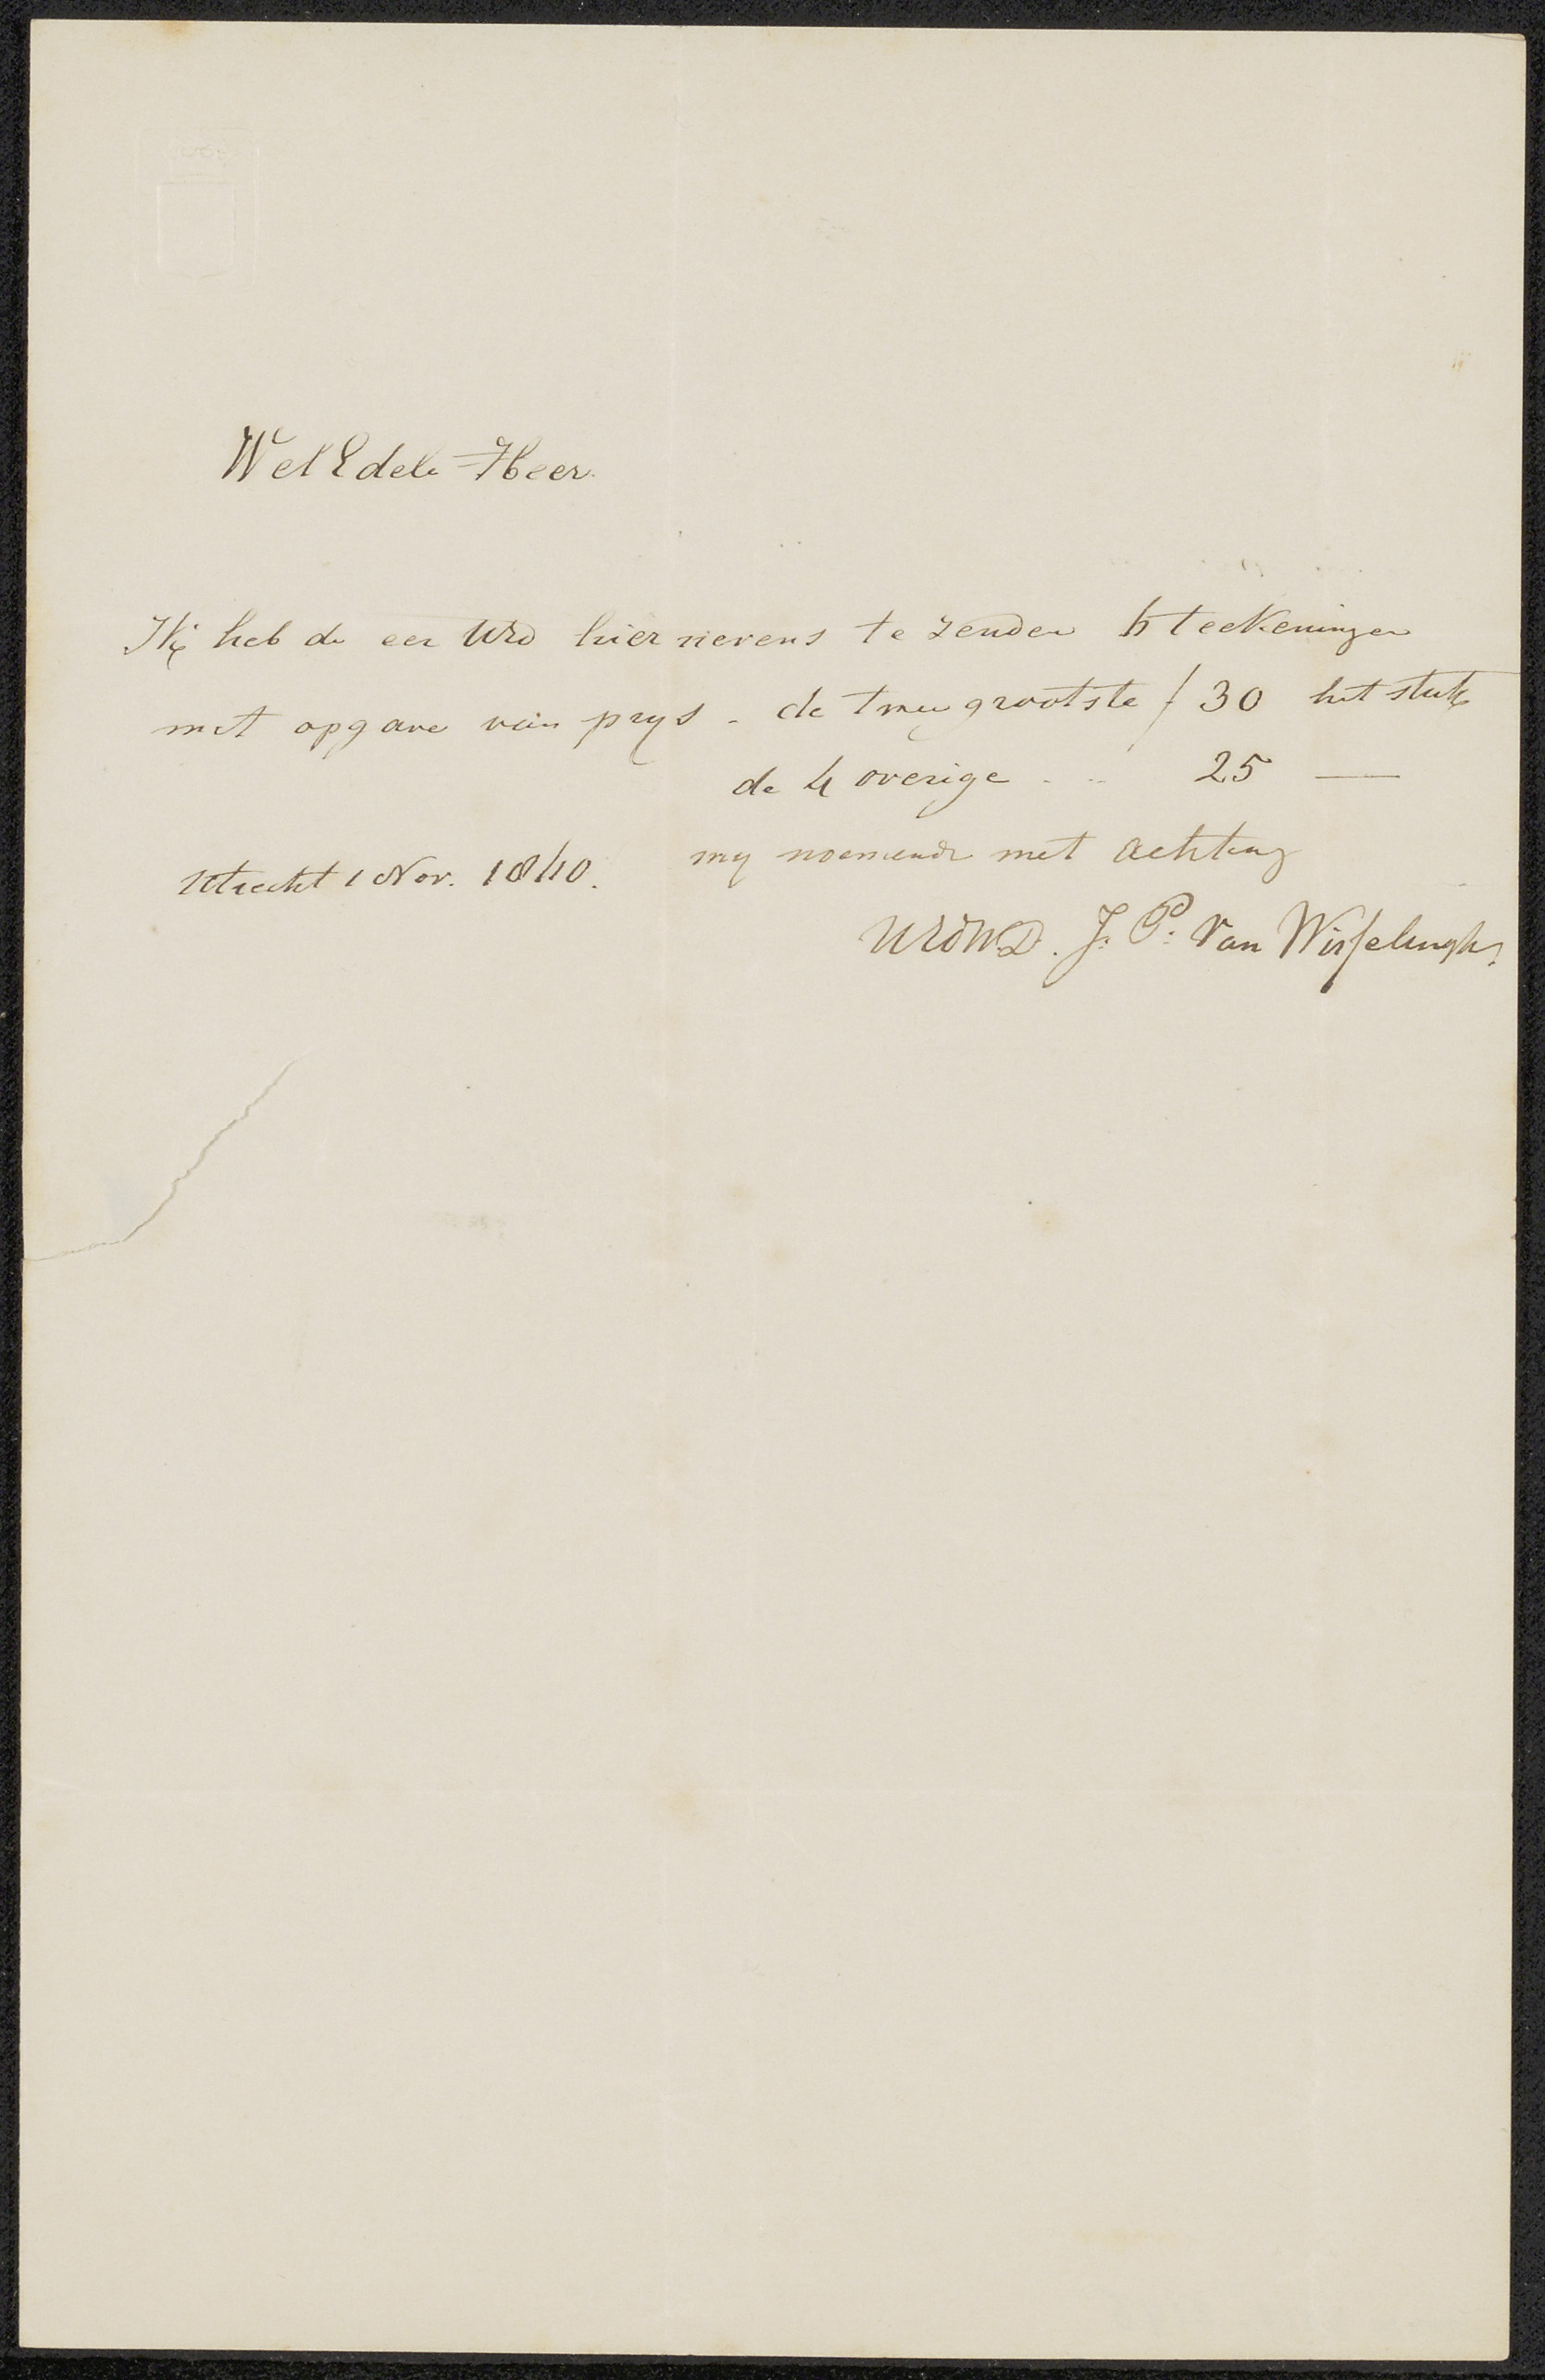 WelEdele Heer
Ik heb de eer UEd hier nevens te zenden 6 teekeningen
met opgave van prys - de twee grootste f 30 het stuk
de 4 overige - .. 25 —
my noemende met achting
Utrecht 1 Nov. 1840.
UEdW.D. J: P: Van Wisselingh